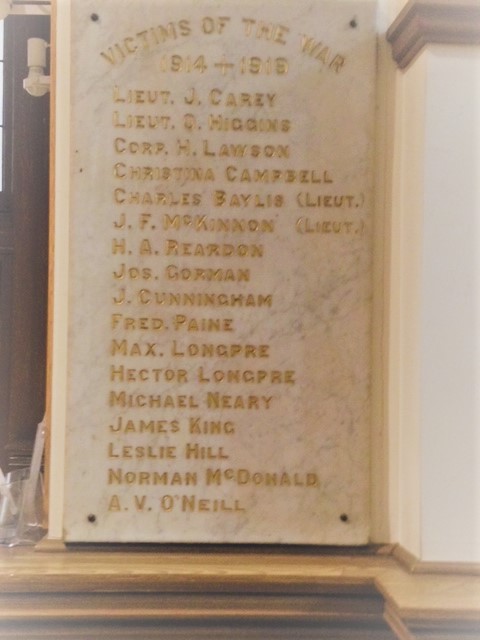 VICTIMS OF THE WAR
1914 + 1919
LIEUT. J. CAREY
LIEUT. Q. HIGGINS
CORP. H. LAWSON
CHRISTINA CAMPBELL
CHARLES BAYLIS (LIEUT.)
J. F. McKINNON (LIEUT.)
H. A. REARDON
JOS. GORMAN
J. CUNNINGHAM
FRED. PAINE
MAX. LONGPRE
HECTOR LONGPRE
MICHAEL NEARY
JAMES KING
LESLIE HILL
NORMAN McDONALD
A. V. O'NEILL